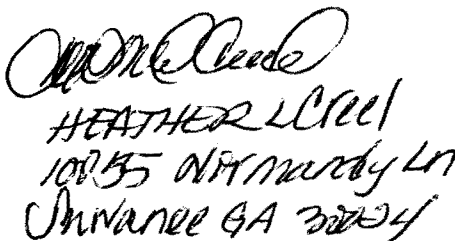 HEATHER L Creel
10855 Normandy Ln
Suwanee GA 30024